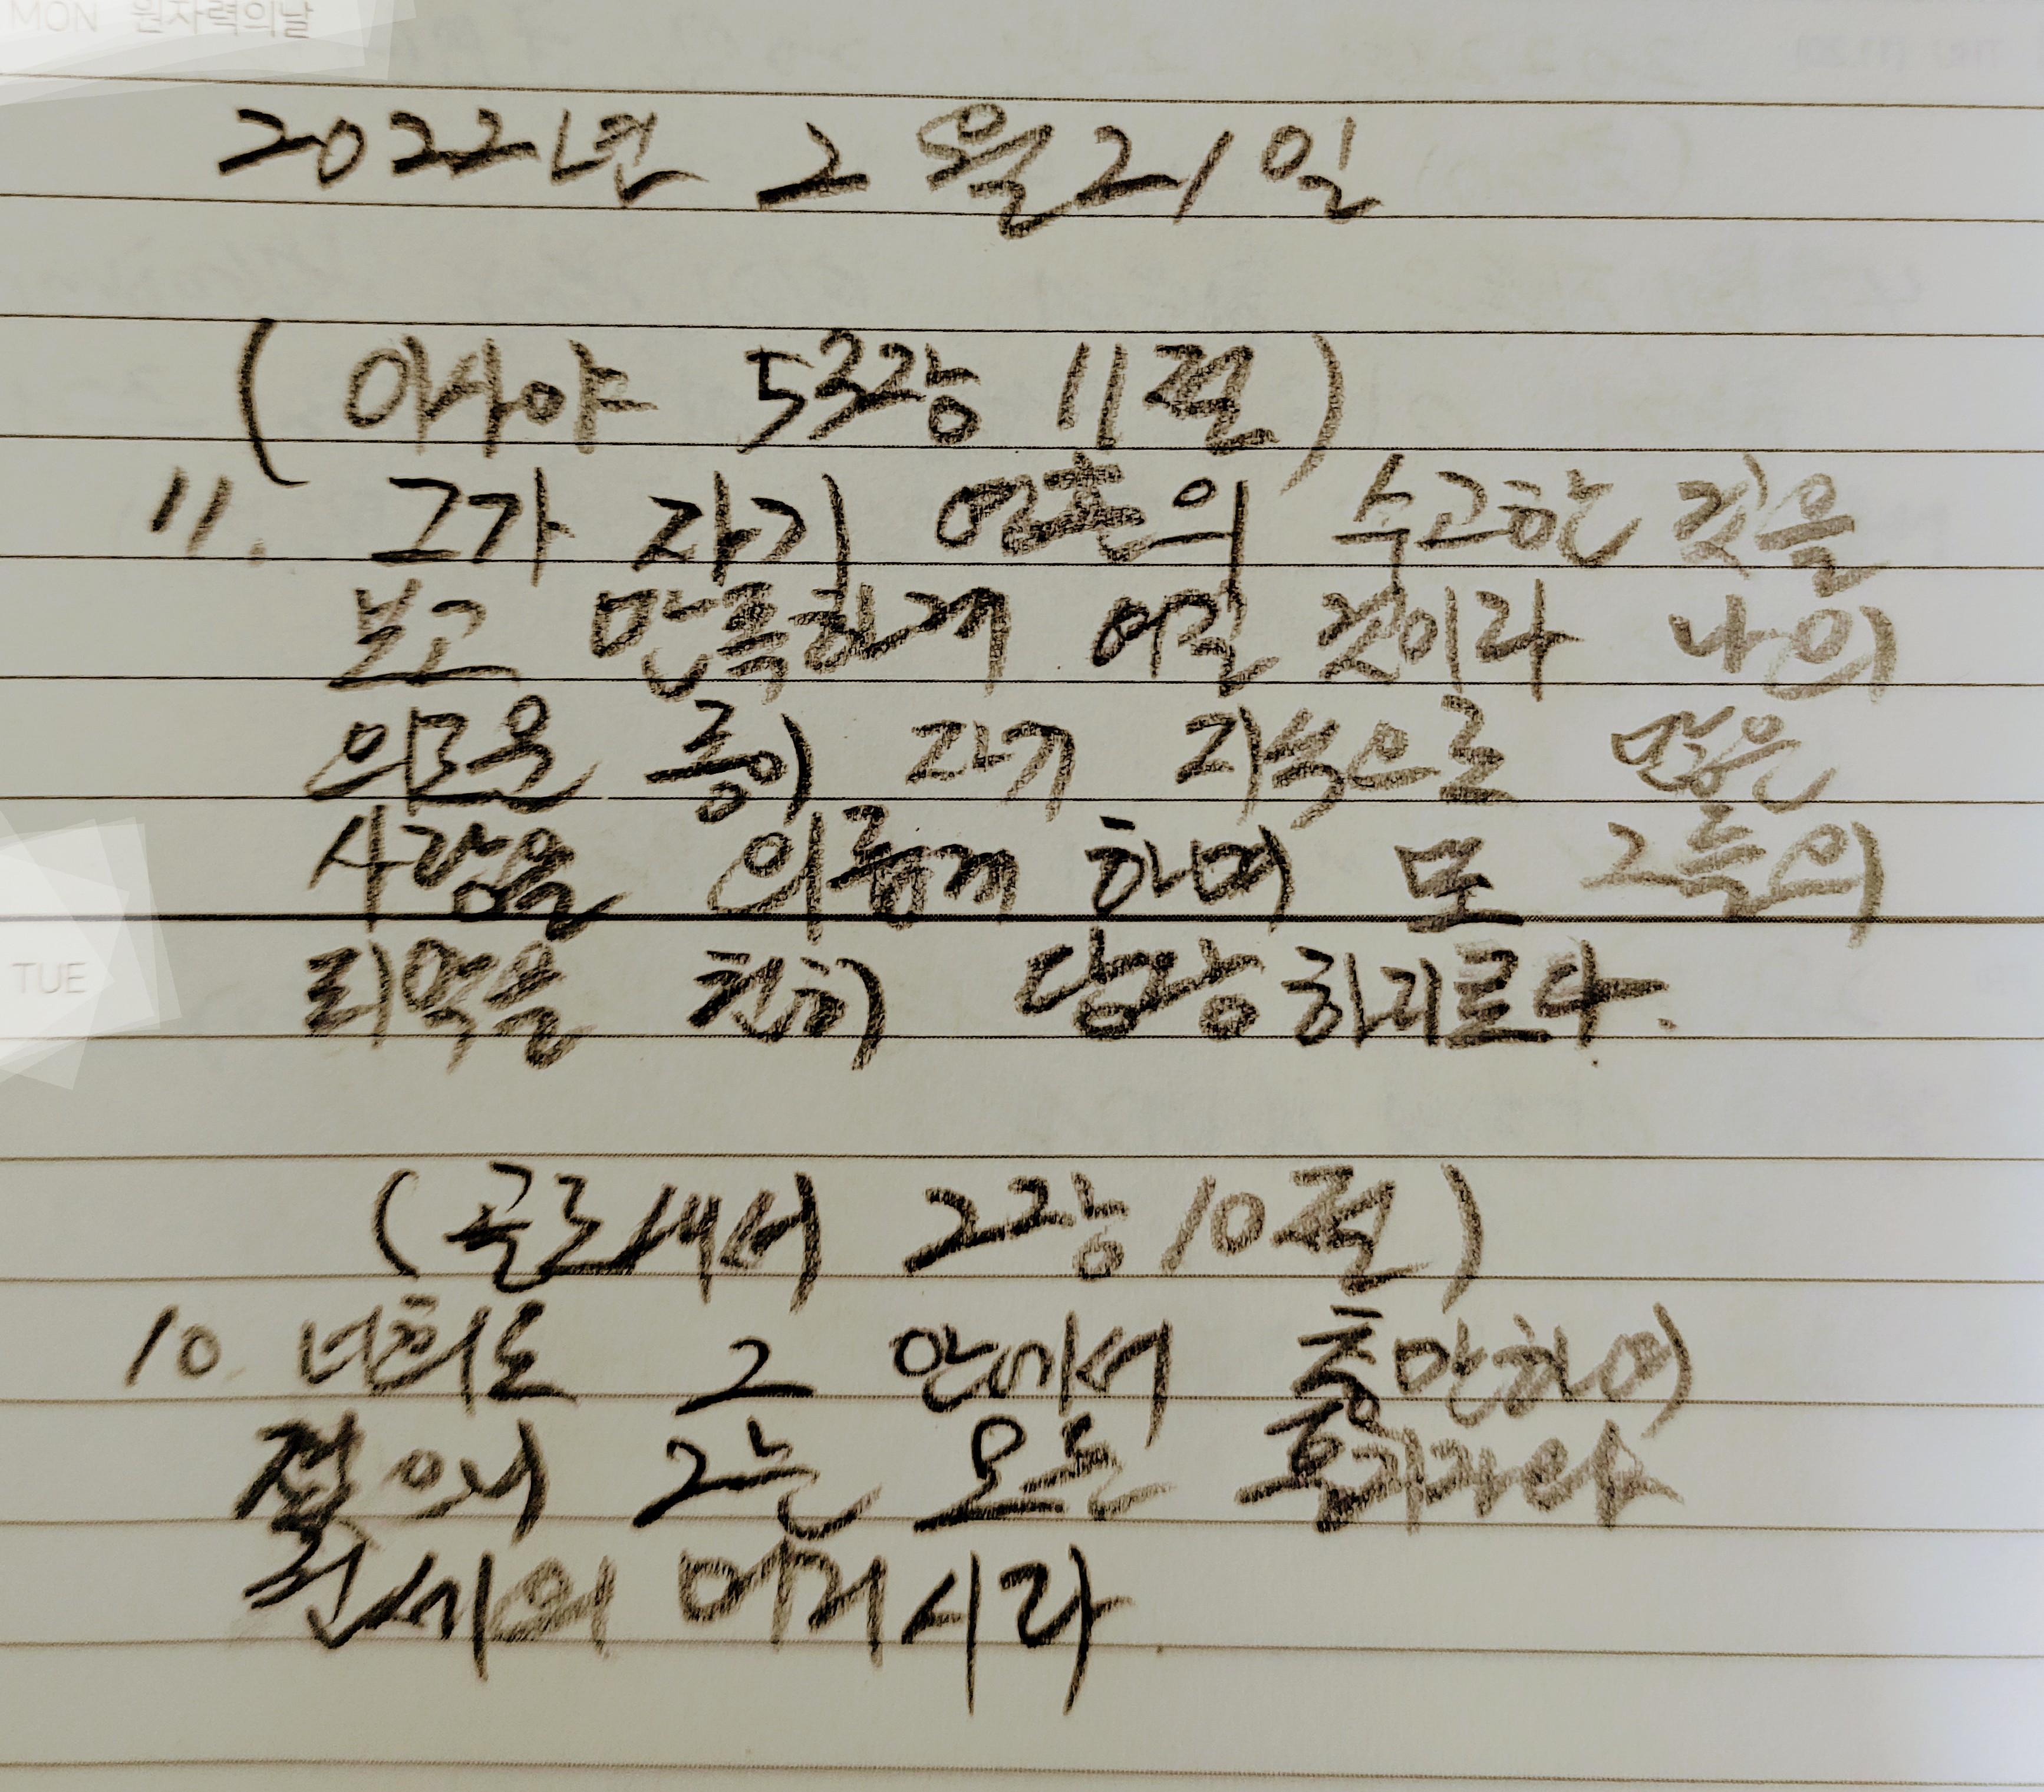 MON 원자력의날
2022년 2월 21일
(이사야 53장 11절)
11. 그가 자기 영혼의 수고한 것을
보고 만족하게 여길 것이라 나의
의로운 종이 자기 지식으로 많은
사람을 의롭게 하며 또 그들의
죄악을 친히 담당하리로다.
(골로새서 2장 10절)
10. 너희도 그 안에서 충만하여
졌으니 그는 모든
TUE
권세의 머리시라